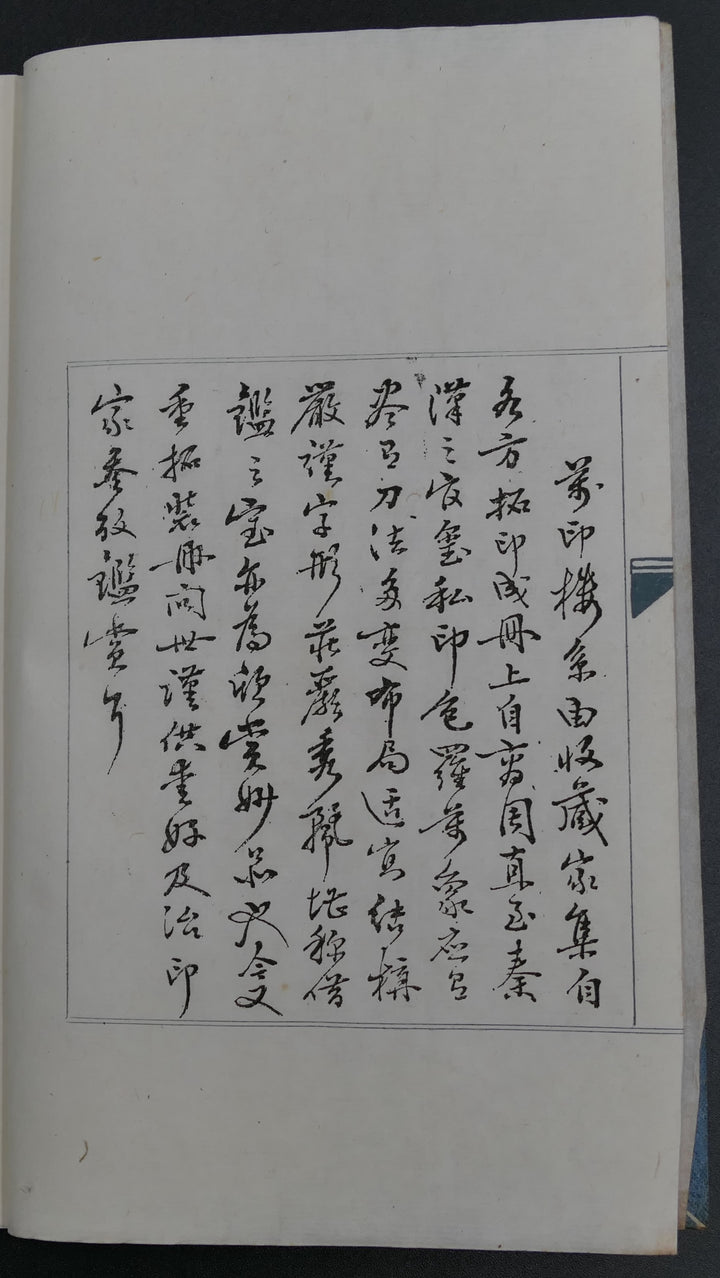 萬印樓系由收藏家集自
各方拓印成冊上自商周直至秦
漢之官璽私印包羅萬象應有
盡有刀法多變布局适宜結構
嚴謹字形莊嚴秀麗堪稱借
鑑之宝亦為欣賞妙品也今又
重拓裝冊問世謹供愛好及治印
家參攷鑑賞耳